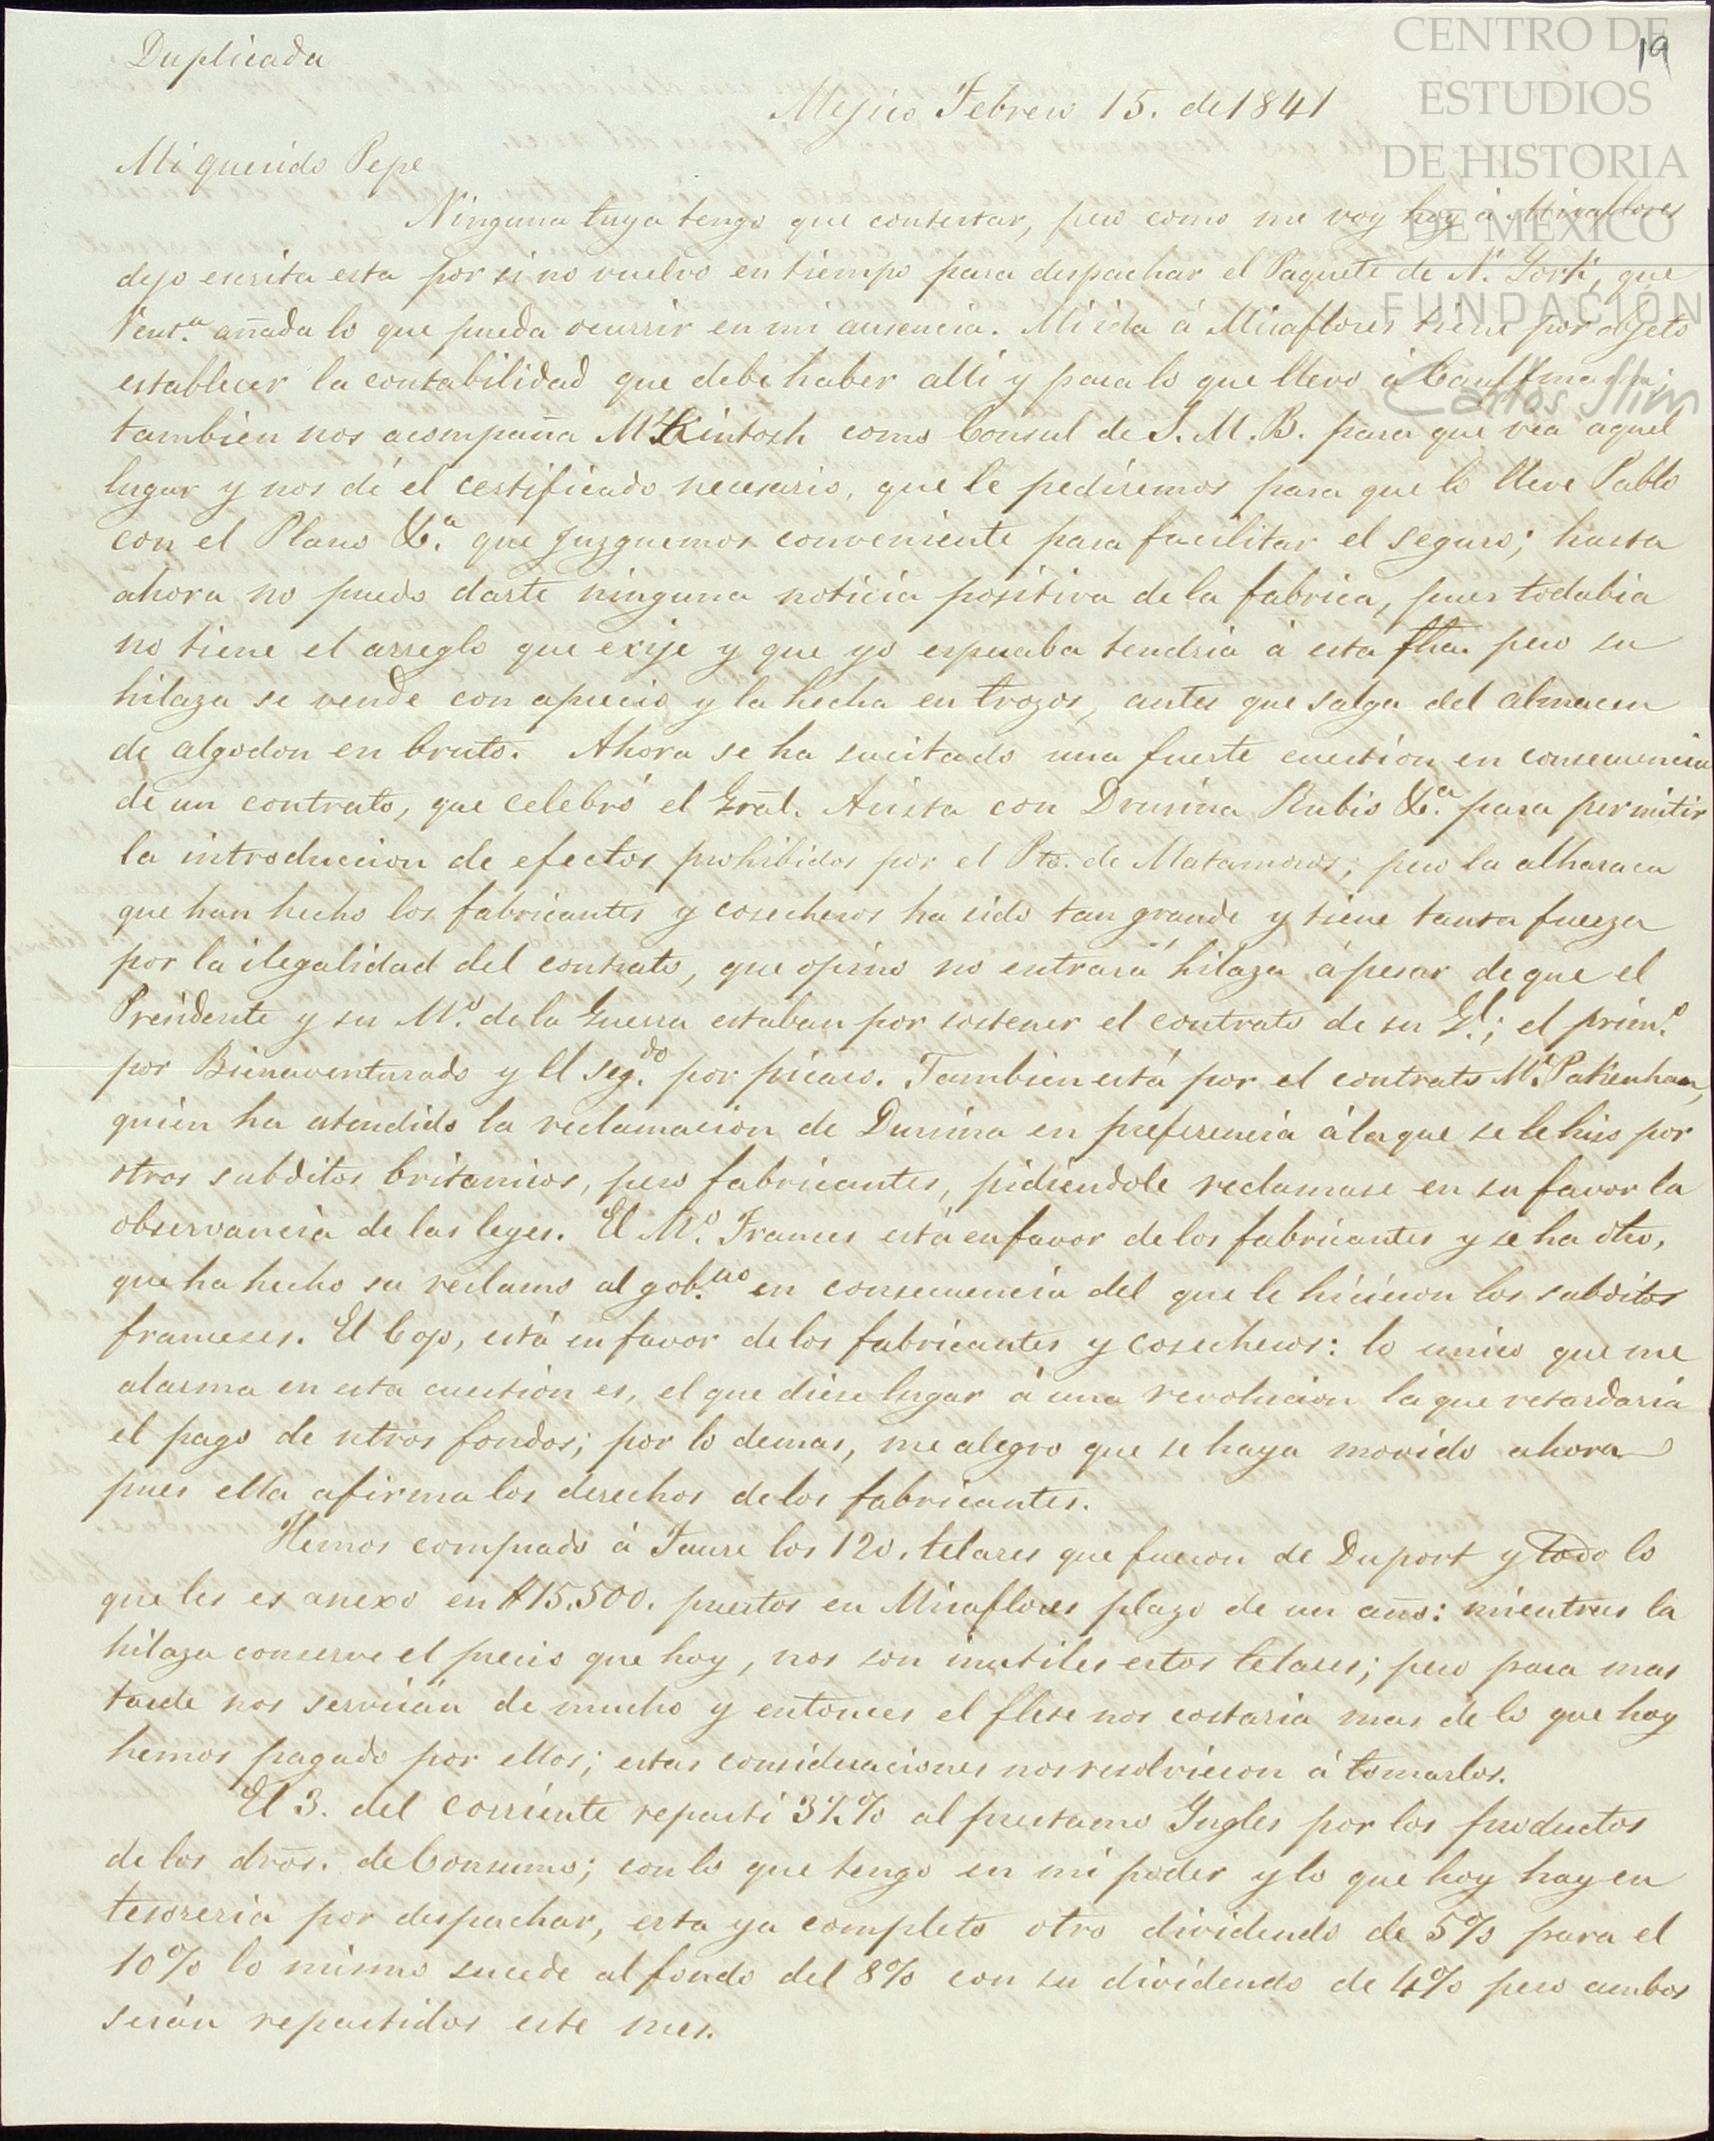 Duplicada
19
CENTRO DE
ESTUDIOS
DE HISTORIA
DE MÉXICO
FUNDACIÓN
Carlos Slim
Mejico Febrero 15. de 1841
Mi querido Pepe
Ninguna tuya tengo que contestar, pero como me voy hoy á Miraflores
dejo escrita esta por si no vuelvo en tiempo para despachar el Paquete de N. York, que
Vent.ª añada lo que pueda ocurrir en mi ausencia. Mi ida á Miraflores tiene por objeto
establecer la contabilidad que debe haber alli y para lo que llevo á Cauffmann;
tambien nos acompaña McKintosh como Consul de S. M. B. para que vea aquel
lugar y nos dé el certificado necesario, que le pediremos para que lo lleve Pablo
con el Plano &.ª que juzguemos conveniente para facilitar el seguro; hasta
ahora no puedo darte ninguna noticia positiva de la fabrica, pues todabia
no tiene el arreglo que exije y que yo esperaba tendria á esta fha. pero su
hilaza se vende con aprecio y la hecha en trozos, antes que salga del almacen
de algodon en bruto. Ahora se ha sucitado una fuerte cuestion en consecuencia
de un contrato, que celebró el Gral. Arista con Drusina Rubio &.ª para permitir
la introduccion de efectos prohibidos por el Pto. de Matamoros; pero la alharaca
que han hecho los fabricantes y cosecheros ha sido tan grande y tiene tanta fuerza
por la ilegalidad del contrato, que opino no entrará hilaza ápesar de que el
Presidente y su M.º de la Guerra estaban por sostener el contrato de su Gl.; el prim.º
por Bienaventurado y el seg.do por picaro. Tambien está por el contrato Mr. Pakenham,
quien ha atendido la reclamacion de Dursina en preferencia á la que se le hizo por
otros subditos britanicos, pero fabricantes, pidiendole reclamase en su favor la
observancia de las leyes. El M.º Frances está en favor de los fabricantes y se ha dho,
que ha hecho su reclamo al gob.no en consecuencia del que le hicieron los subditos
franceses. El Cojo, está en favor de los fabricantes y cosecheros: lo unico que me
alarma en esta cuestion es, el que diese lugar á una revolucion la que retardaria
el pago de ntros fondos; por lo demas, me alegro que se haya movido ahora
pues ella afirma los derechos de los fabricantes.
Hemos comprado á Faure los 120. telares que fueron de Duport y todo lo
que les es anexo en $15.500. puestos en Miraflores plazo de un año: mientras la
hilaza conserve el precio que hoy, nos son inutiles estos telares; pero para mas
tarde nos servirán de mucho y entonces el flete nos costaria mas de lo que hoy
hemos pagado por ellos; estas consideraciones nos resolvieron á tomarlos.
El 3. del corriente reparti 3½% al prestamo Yngles por los productos
de los dros. de Consumo; con lo que tengo en mi poder y lo que hoy hay en
tesoreria por despachar, esta ya completo otro dividendo de 5% para el
10% lo mismo sucede al fondo del 8% con su dividendo de 4% pero ambos
serán repartidos este mes.